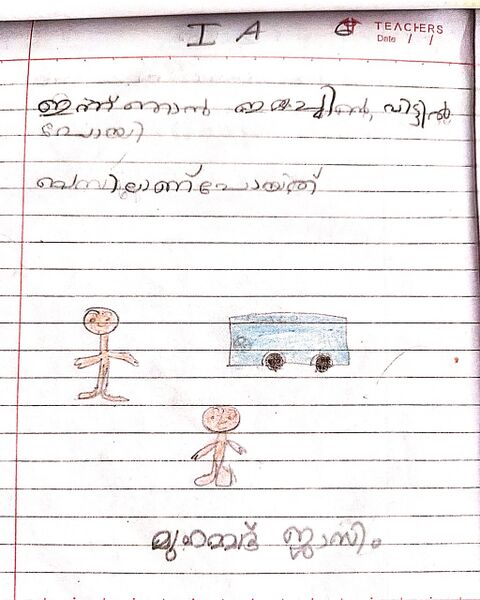 I A
TEACHERS
Date / /
ഇന്ന് ഞാൻ വീട്ടിൽ
പോയി
ബസിലാണ് പോയത്
മുഹമ്മദ് ജാസിം